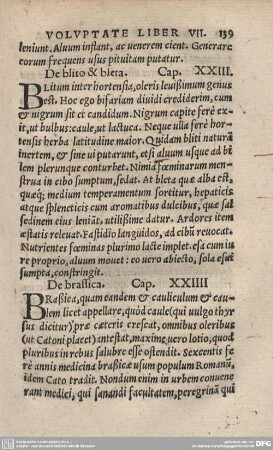 VOLVPTATE LIBER VII. 139
leniunt. Aluum inflant, ac uenerem cient. Generare
eorum frequens usus pituitam putatur.
De blito & bleta. Cap. XXIII.
BLitum inter hortensia, oleris leuissimum genus
est. Hoc ego bifariam diuidi crediderim, cum
& nigrum sit et candidum. Nigrum capite ferè ex
it, ut bulbus: caule, ut lactuca. Neque ulla ferè hor-
tensis herba latitudine maior. Quidam bliti naturā
inertem, & sine ui putarunt, etsi aluum usque ad bi
lem plerunque conturbet. Nimia fœminarum men-
strua in cibo sumptum, sedat. At bleta quæ alba est,
quæq; medium temperamentum sortitur, hepaticis
atque spleneticis cum aromatibus dulcibus, quæ sal
sedinem eius leniāt, utilissime datur. Ardores item
æstatis releuat. Fastidio languidos, ad cibū reuocat.
Nutrientes fœminas plurimo lacte implet. esa cum iu
re proprio, aluum mouet: co uero abiecto, sola esui
sumpta, constringit.
De brassica. Cap. XXIIII
BRassica, quam eandem & cauliculum & cau-
lem licet appellare, quòd caule (qui uulgo thyr
sus dicitur) præ cæteris crescat, omnibus oleribus
(ut Catoni placet) antestat, maxime uero lotio, quod
pluribus in rebus salubre esse ostendit. Sexcentis fe
rè annis medicina brassicæ usum populum Romanū,
idem Cato tradit. Nondum enim in urbem conuene
rant medici, qui sanandi facultatem, peregrinā qui